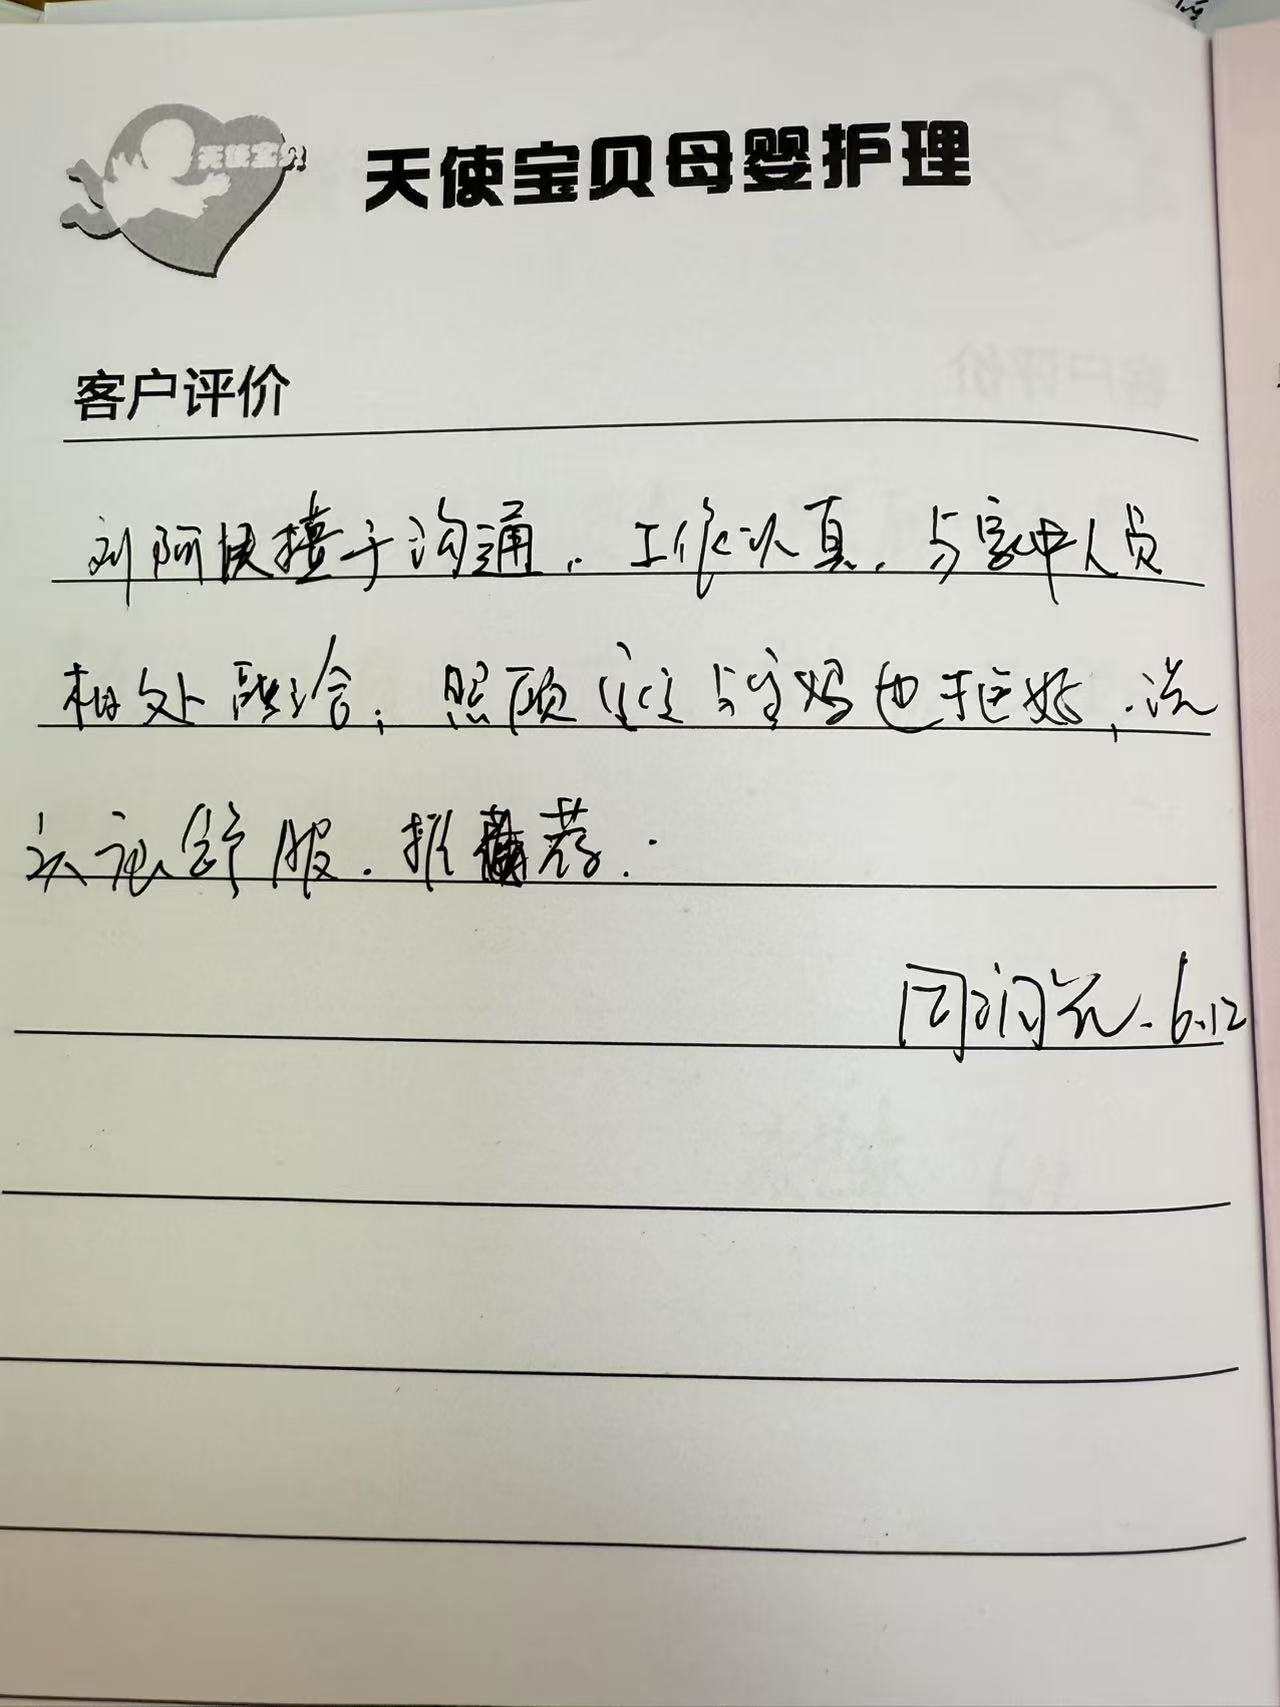 天使宝贝
天使宝贝母婴护理
客户评价
刘阿姨擅于沟通。工作认真,与家中人员
相处融洽;照顾宝宝与宝妈也挺好,让
人 舒服.推荐.
周润 .6.12